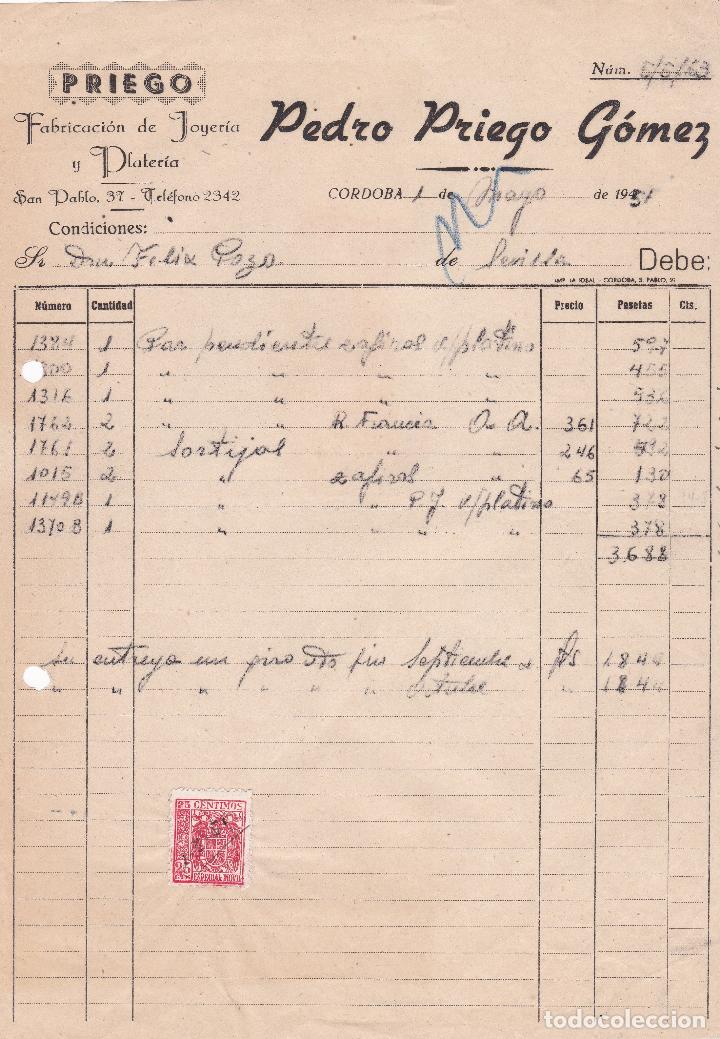 PRIEGO
Fabricación de Joyería
y Platería
San Pablo, 37 - Teléfono 2342
Núm.
Pedro Priego Gómez
CORDOBA 1 de Mayo de 1951
Condiciones:
Sr Dn Felix Pozo de Sevilla Debe:
IMP. LA IDEAL - CORDOBA, S. PABLO,
Número Cantidad Precio Pesetas Cts.
1384 1 Par pendientes zafiros c/platino 597
1 " " " " 455
1316 1 " " " " 536
1762 2 " " R. Francia O. A. 361 722
1761 2 Sortijas " " 246 492
1015 2 " zafiros " 65 130
1149B 1 " " P.J. c/platino 378
1370B 1 " " " " 378
3.688
Su entrega un giro fin Septiembre Pts 1844
" " " " " " Octubre " 1844
25 CENTIMOS
25
ESPECIAL MOVIL
todocoleccion.net